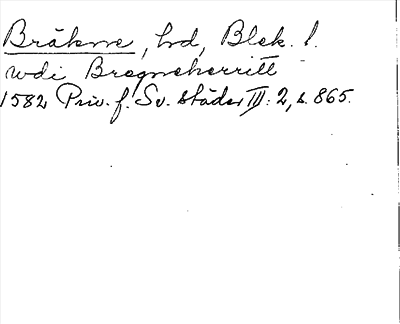 Bräkne, hd, Blek. l.
wdi Bregneherritt
1582 Priv. f. Sv. städer III: 2, s. 865.